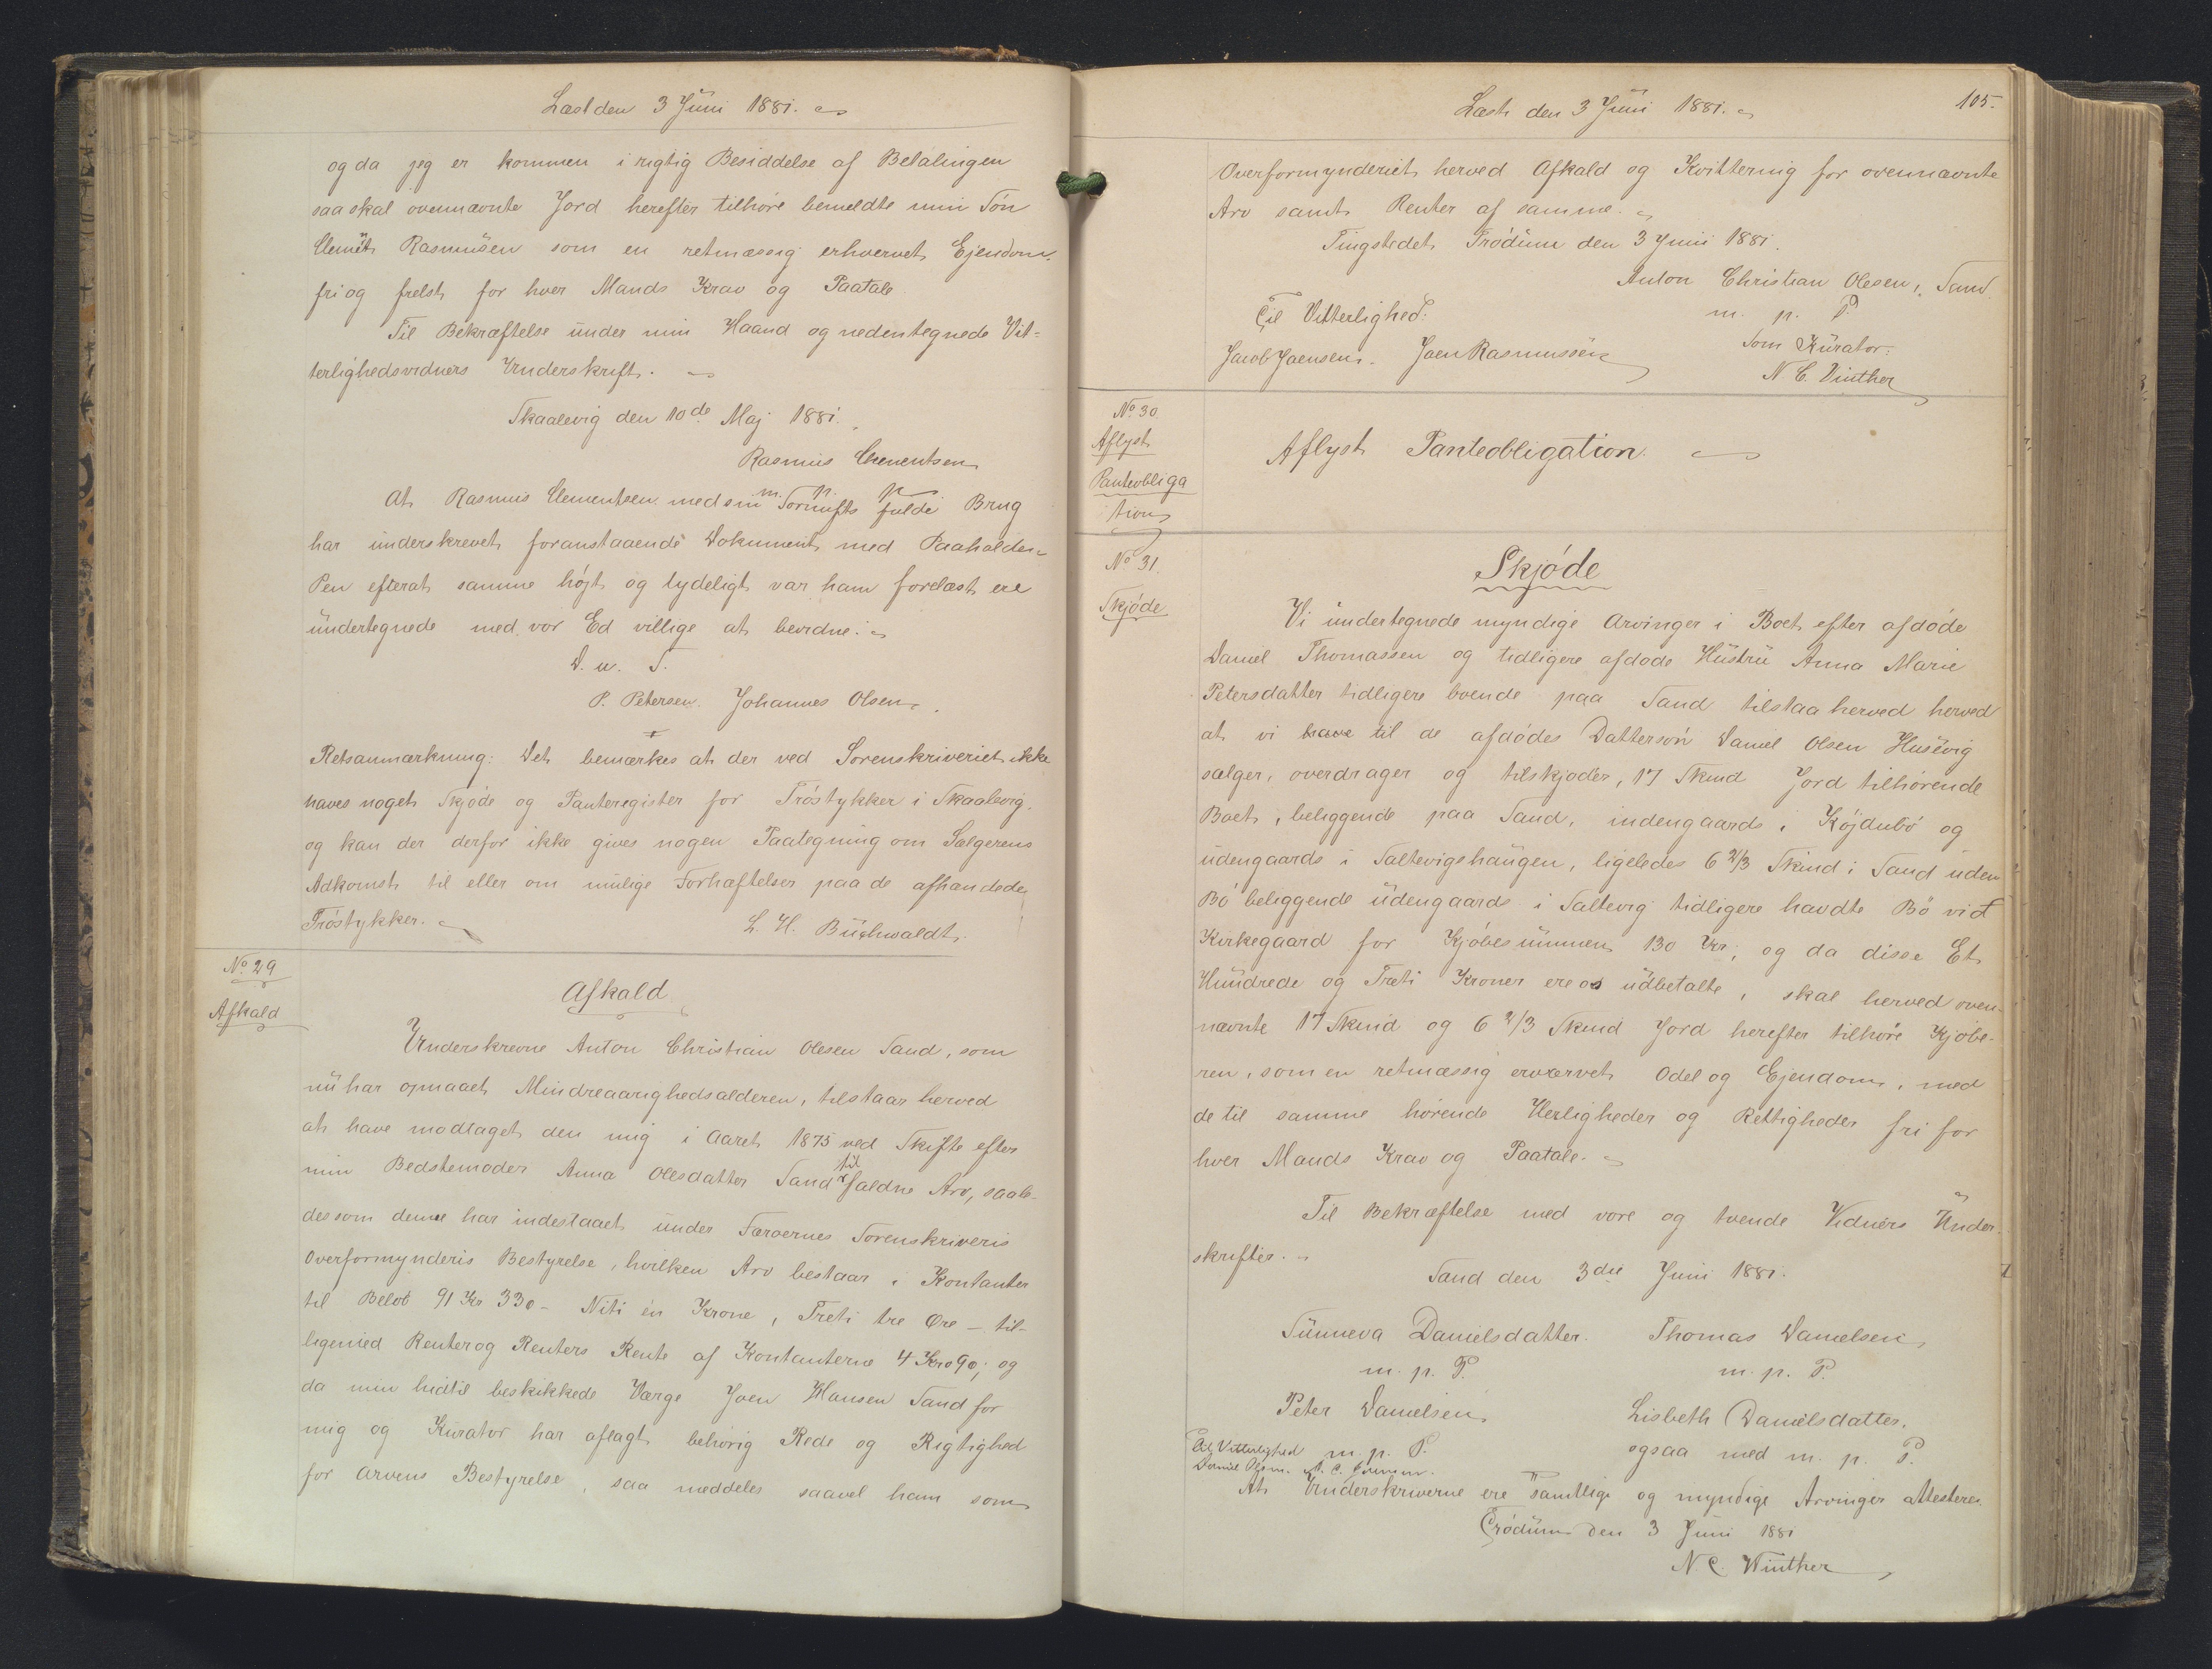 Læst den 3 Juni 1881.
og da jeg er kommen i rigtig Besiddelse af Betalingen
saa skal ovennævnte Jord herefter tilhøre bemeldte min Søn
Clemet Rasmusen som en retmæssig erhvervet Ejendom
fri og frelst for hver Mands Krav og Paatale
Til Bekræftelse under min Haand og nedentegnede Vit=
terlighedsvidners Underskrift.
Skaalevig den 10de Maj 1881.
Rasmus Clementsen
m. p. p
At Rasmus Clementsen med sin Fornufts fulde Brug
har underskrevet foranstaaende Dokument med Paaholden
Pen efterat samme højt og tydeligt var ham forelæst ere
undertegnede med vor Ed villige at bevidne.
D. u. S.
P. Petersen. Johannes Olsen.
Retsanmærkning: Det bemærkes at der ved Sorenskriveriet ikke
haves noget Skjøde og Panteregister for Trøstykker i Skaalevig
og kan der derfor ikke gives nogen Paategning om Sælgerens
Adkomst til eller om mulige Forhæftelser paa de afhændede
Trøstykker.
L. H. Buchwaldt.
No 29
Afkald
Afkald
Underskrevne Anton Christian Olesen Sand, som
nu har opnaaet Mindreaarighedsalderen, tilstaar herved
at have modtaget den mig i Aaret 1875 ved Skifte efter
min Bedstemoder Anna Olesdatter Sand til faldne Arv, saale-
des som denne har indestaaet under Færøernes Sorenskriveris
Overformynderis Bestyrelse, hvilken Arv bestaar i Kontanter
til Beløb 91 Kr 33ø - Niti én Krone, Treti tre Øre - til-
ligemed Renter og Renters Rente af Kontanterne 4 Kro 9ø; og
da min hidtil beskikkede Værge Joen Hansen Sand for
mig og Kurator har aflagt behørig Rede og Rigtighed
for Arvens Bestyrelse, saa meddeles saavel ham som
Læst den 3 Juni 1881.
105.
Overformynderiet herved Afkald og Kvittering for ovennævnte
Arv samt Renter af samme.
Tingstedet Trødum den 3 Juni 1881.
Anton Christian Olesen, Sand
m. p. P.
Til Vitterlighed:
Som Kurator:
Jacob Joensen. Joen Rasmussen
N C. Vinther
No 30
Aflyst
Panteobliga
tion
Aflyst Panteobligation.
No 31.
Skjøde
Skjøde
Vi undertegnede myndige Arvinger i Boet efter afdøde
Daniel Thomassen og tidligere afdøde Hustru Anna Marie
Petersdatter tidligere boende paa Sand tilstaa herved herved
at vi have til de afdødes Dattersøn Daniel Olsen Husevig
sælger, overdrager og tilskjøder, 17 Skind Jord tilhørende
Boet, beliggende paa Sand, indengaards i Køjdubø og
udengaards i Saltevigshaugen, ligeledes 6 2/3 Skind i Sand uden
Bø beliggende udengaards i Saltevig tidligere havdte Bø vid
Kirkegaard for Kjøbesummen 130 Kr; og da disse Et
Hundrede og Treti Kroner ere os udbetalte, skal herved oven-
nævnte 17 Skind og 6 2/3 Skind Jord herefter tilhøre Kjøbe-
ren, som en retmæssig erværvet Odel og Ejendom, med
de til samme hørende Herligheder og Rettigheder fri for
hver Mands Krav og Paatale.
Til Bekræftelse med vore og tvende Vidners Under
skrifter.
Sand den 3die Juni 1881.
Sunneva Danielsdatter. Thomas Danielsen
m. p. P. m. p. P.
Peter Danielsen Lisbeth Danielsdatter.
m. p. P. ogsaa med m. p. P.
Til Vitterlighed
Daniel Olsen.
At Underskriverne ere samtlige og myndige Arvinger attesteres
Trødum den 3 Juni 1881
N. C. Winther